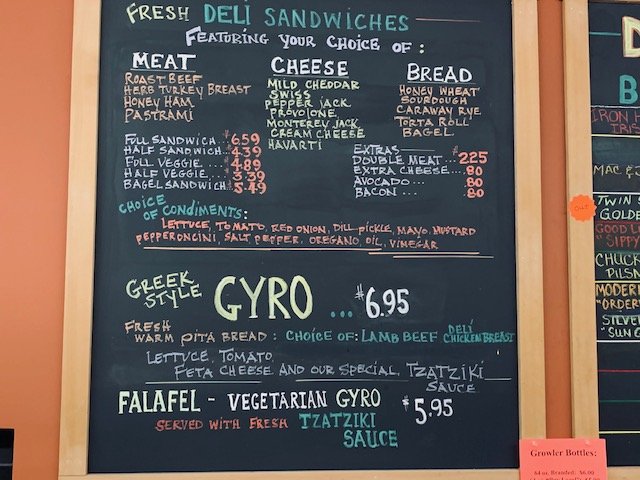 FRESH DELI SANDWICHES
FEATURING YOUR CHOICE OF:
MEAT
ROAST BEEF
HERB TURKEY BREAST
HONEY HAM
PASTRAMI
CHEESE
MILD CHEDDAR
SWISS
PEPPER JACK
PROVOLONE
MONTEREY JACK
CREAM CHEESE
HAVARTI
BREAD
HONEY WHEAT
SOURDOUGH
CARAWAY RYE
TORTA ROLL
BAGEL
FULL SANDWICH... $6.59
HALF SANDWICH... 4.39
FULL VEGGIE.... $4.89
HALF VEGGIE.... $3.39
BAGEL SANDWICH... $5.49
EXTRAS
DOUBLE MEAT... $2.25
EXTRA CHEESE.... .80
AVOCADO... .80
BACON... .80
CHOICE OF CONDIMENTS:
LETTUCE, TOMATO, RED ONION, DILL PICKLE, MAYO, MUSTARD
PEPPERONCINI, SALT PEPPER, OREGANO, OIL, VINEGAR
GREEK STYLE GYRO... $6.95
FRESH
WARM PITA BREAD: CHOICE OF: LAMB BEEF DELI CHICKEN BREAST
LETTUCE, TOMATO
FETA CHEESE AND OUR SPECIAL TZATZIKI SAUCE
FALAFEL - VEGETARIAN GYRO $5.95
SERVED WITH FRESH TZATZIKI SAUCE
D
B
IRON H
IRIS
MAC &
TWIN S
GOLDE
GOOD L
"SIPPY
CHUCK
PILSN
MODER
"ORDER
SILVE
"SUN
Growler Bottles:
64 oz. Branded: $6.00